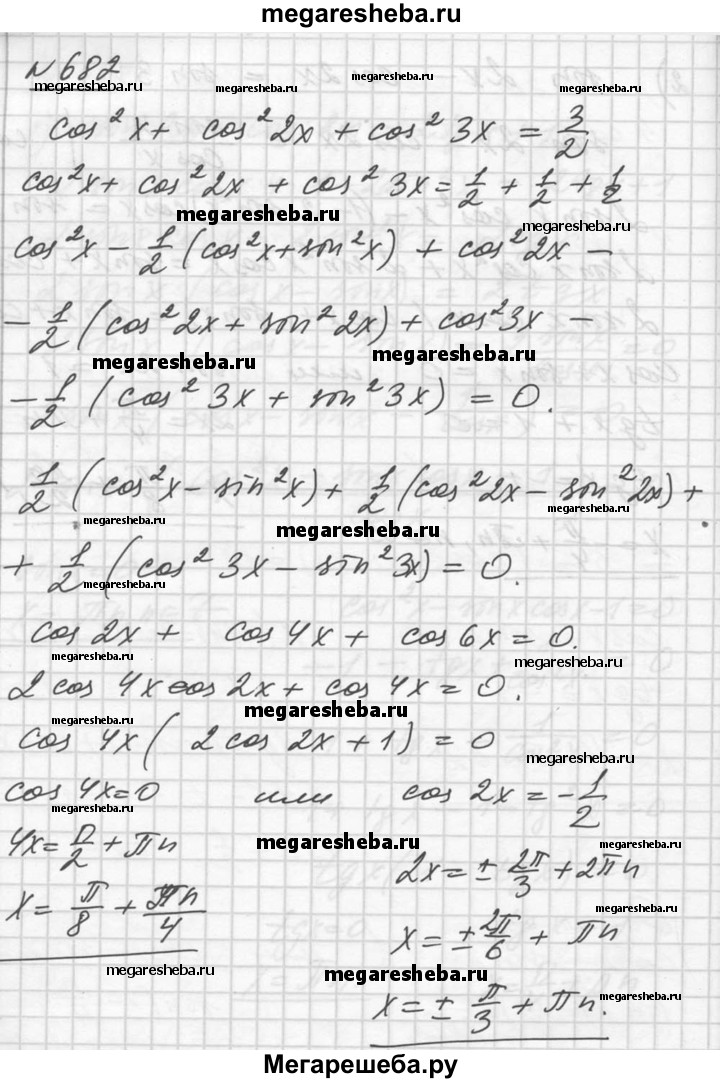 megaresheba.ru
№682
megaresheba.ru megaresheba.ru
cos²x + cos²2x + cos²3x = 3/2
cos²x + cos²2x + cos²3x = 1/2 + 1/2 + 1/2
megaresheba.ru megaresheba.ru
cos²x − 1/2 (cos²x + sin²x) + cos²2x −
− 1/2 (cos²2x + sin²2x) + cos²3x −
megaresheba.ru megaresheba.ru
− 1/2 (cos²3x + sin²3x) = 0.
1/2 (cos²x − sin²x) + 1/2 (cos²2x − sin²2x) +
megaresheba.ru megaresheba.ru megaresheba.ru
+ 1/2 (cos²3x − sin²3x) = 0.
megaresheba.ru
cos 2x + cos 4x + cos 6x = 0.
megaresheba.ru megaresheba.ru
2 cos 4x cos 2x + cos 4x = 0.
megaresheba.ru megaresheba.ru
cos 4x (2 cos 2x + 1) = 0
megaresheba.ru
cos 4x = 0 или cos 2x = −1/2
megaresheba.ru
4x = π/2 + πn
megaresheba.ru
2x = ± 2π/3 + 2πn
x = π/8 + πn/4
megaresheba.ru
x = ± 2π/6 + πn
megaresheba.ru megaresheba.ru
x = ± π/3 + πn.
megaresheba.ru
Мегарешеба.ру